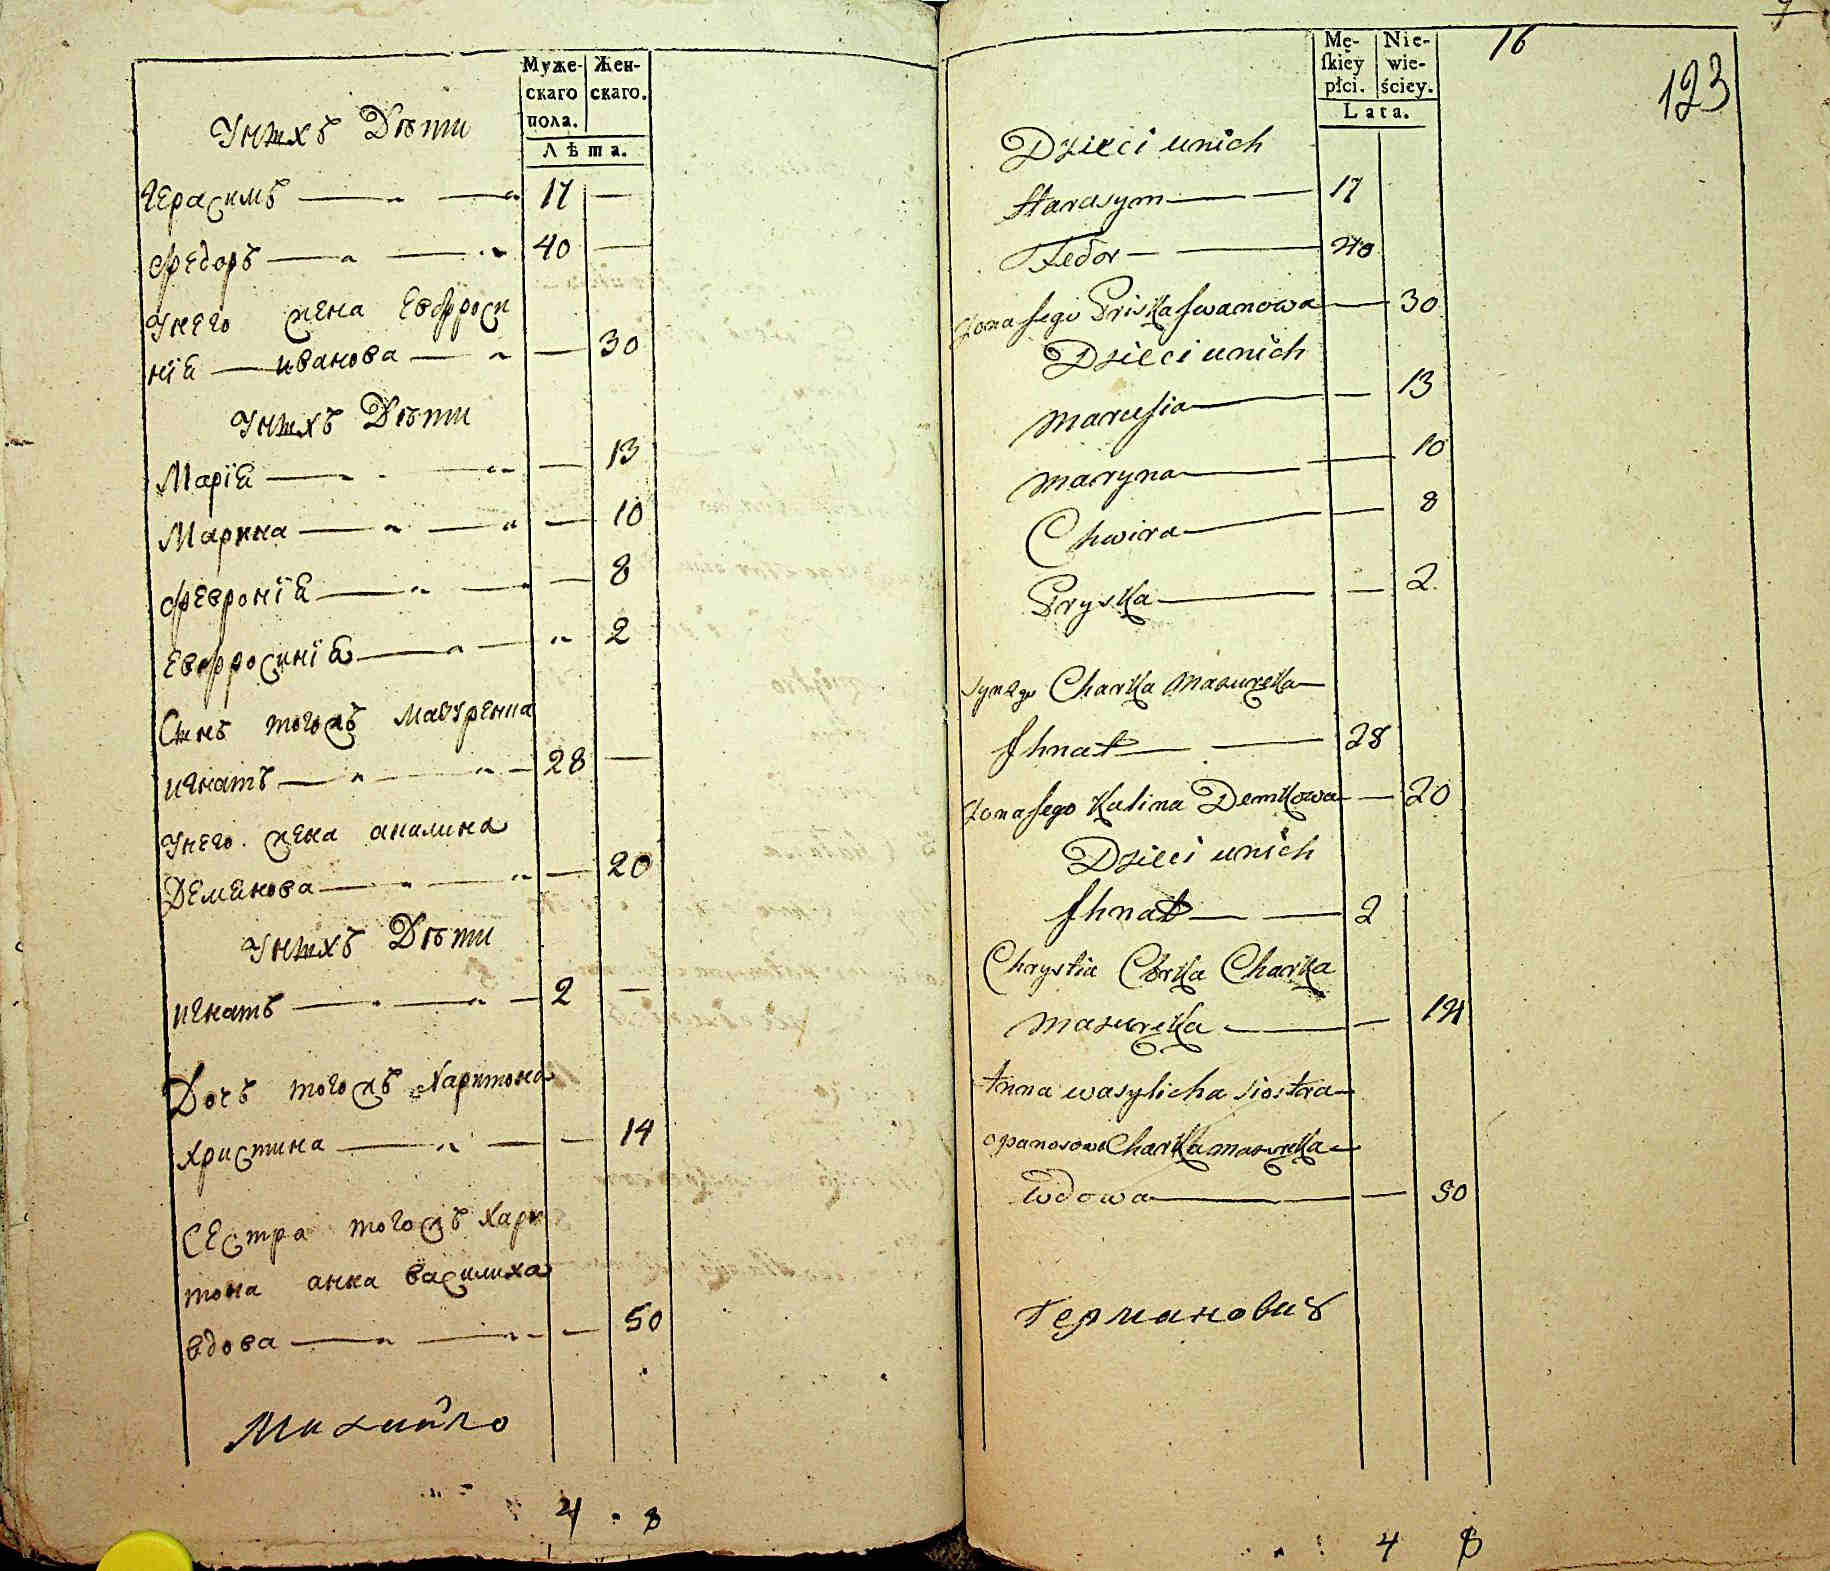 Муже-
скаго
пола.
Жен-
скаго.
Лѣта.
Унихъ Дѣти
Герасимъ 17
Федоръ 40
Унего жена Евфроси
нія иванова 30
Унихъ Дѣти
Марія 13
Марина 10
Февронія 8
Евфросинія 2
Сынъ тогожъ
игнатъ 28
Унего жена акилина
Демянова 20
Унихъ Дѣти
игнатъ 2
Дочъ тогожъ Харитона
Христина 14
Сестра тогожъ Хари
тона анна василиха
вдова 50
Михайло
4 8
Mę-
ſkiey
płci.
Nie-
wie-
ściey.
Lata.
16
123
Dzieci unich
Harasym 17
Fedor 40
Zona Jego Pryska Jwanowa 30
Dzieci unich
Marusia 13
Maryna 10
Chwira 8
Pryska 2
Charka Mazurka
Jhnat 28
Zona Jego Kulina Demkowa 20
Dzieci unich
Jhnat 2
Chrystia Córka Charka
Mazurka 14
Anna wasylicha siostra
Charka Mazurka
wdowa 50
Германовичъ
4 8